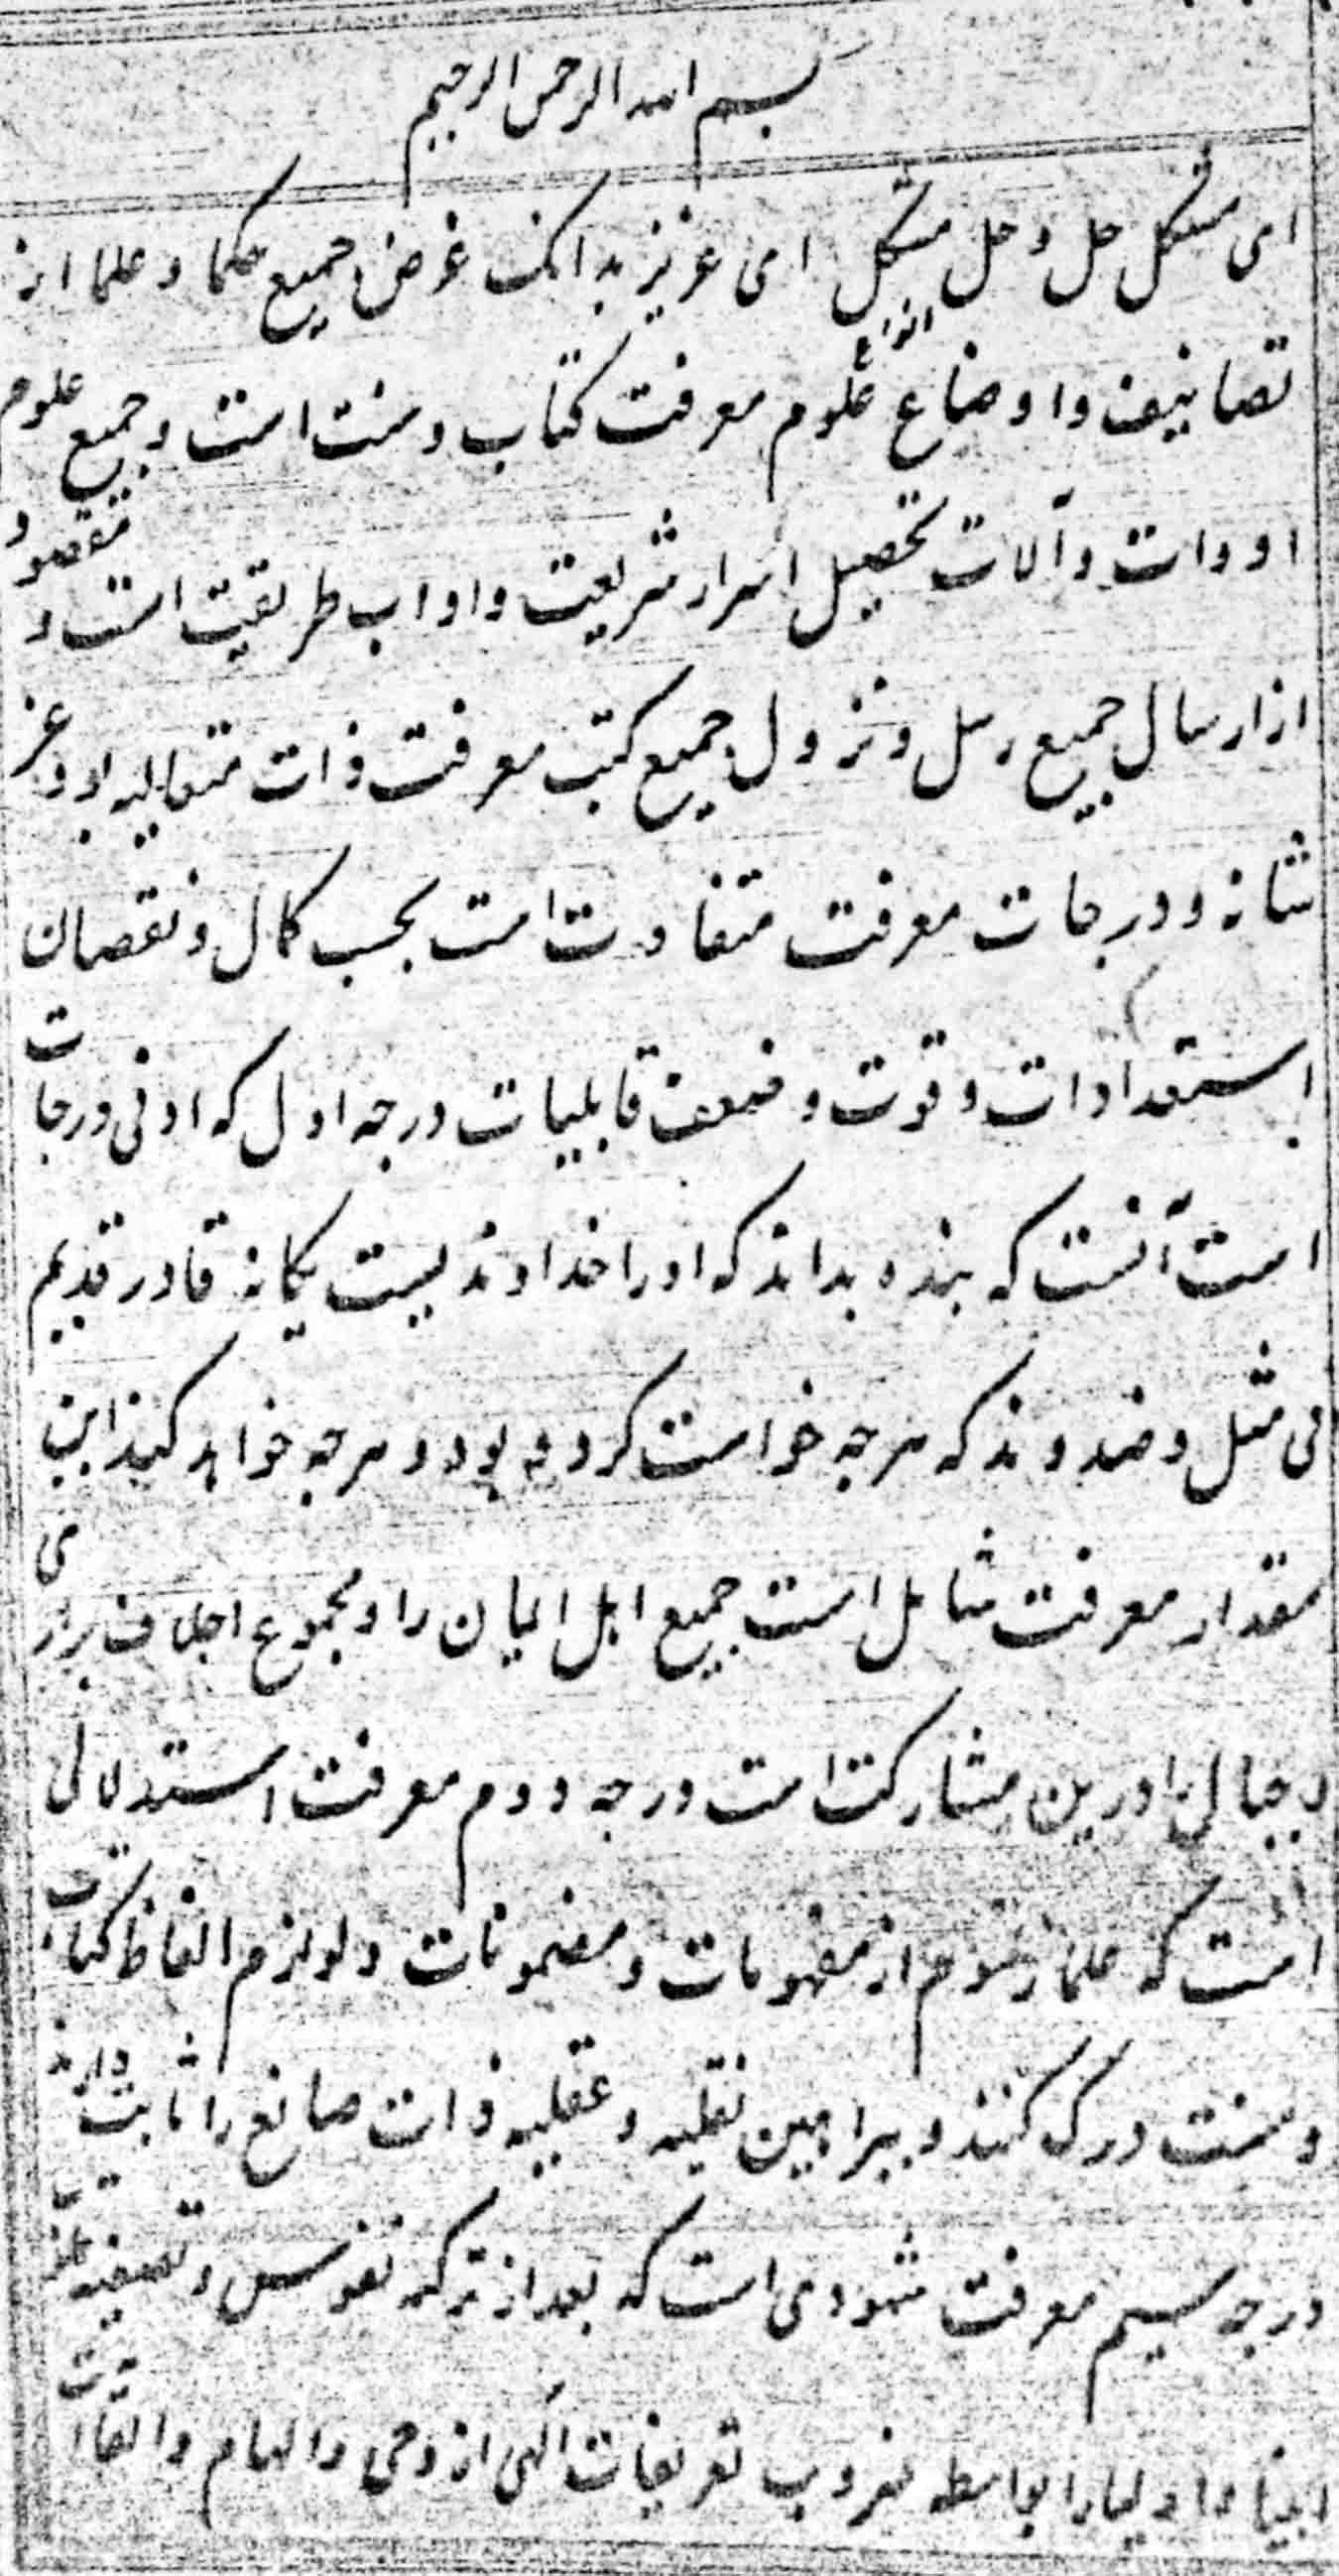 بسم الله الرحمن الرحیم
ای مشکل حل و حل مشکل ای عزیز بدانک غرض جمیع حکما و علما از
تصانیف و اوضاع انواع علوم معرفت کتاب و سنت است و جمیع علوم
ادوات و آلات تحصیل اسرار شریعت و اداب طریقت است و مقصود
از ارسال جمیع رسل و نزول جمیع کتب معرفت ذات متعالیه او و عز
شانه و درجات معرفت متفاوت است بحسب کمال و نقصان
استعدادات و قوت و ضعف قابلیات درجه اول که ادنی درجات
است آنست که بنده بداند که او را خداوندیست یکانه قادر قدیم
بی مثل و ضد و ند که هرچه خواست کرد و بود و هرچه خواهد کند این
مقدار معرفت شامل است جمیع اهل ایمان را و مجموع اجلاف
را درین مشارکت است درجه دوم معرفت استدلالی
است که علما رسوم از مفهومات و مضمونات و لوازم الفاظ کتاب
و سنت درک کنند و ببراهین نقلیه و عقلیه ذات صانع را ثابت دارند
درجه سیم معرفت شهودی است که بعد از تزکیه نفوس و تصفیه
انبیا و اولیا را بواسطه ضروب تعریفات الهی از وحی و الهام و القا